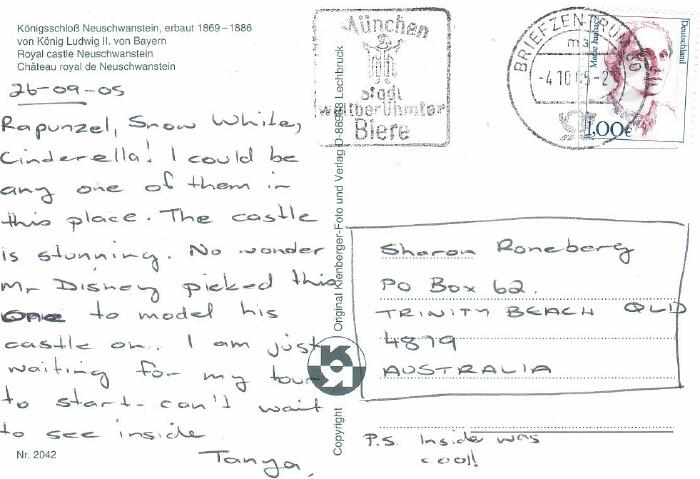 Königsschloß Neuschwanstein, erbaut 1869–1886
von König Ludwig II. von Bayern
Royal castle Neuschwanstein
Château royal de Neuschwanstein
26-09-05
Rapunzel, Snow White,
Cinderella! I could be
any one of them in
this place. The castle
is stunning. No wonder
Mr Disney picked this
one to model his
castle on. I am just
waiting for my tour
to start - can't wait
to see inside
Tanya.
Nr. 2042
Copyright
Original Kienberger-Foto und Verlag D-86983 Lechbruck
München
Stadt
weltberühmter
Biere
BRIEFZENTRUM
-4.10.05-2
Deutschland
1,00€
Sharon Roneberg
PO Box 62.
TRINITY BEACH QLD
4879
AUSTRALIA
P.S. Inside was
cool!